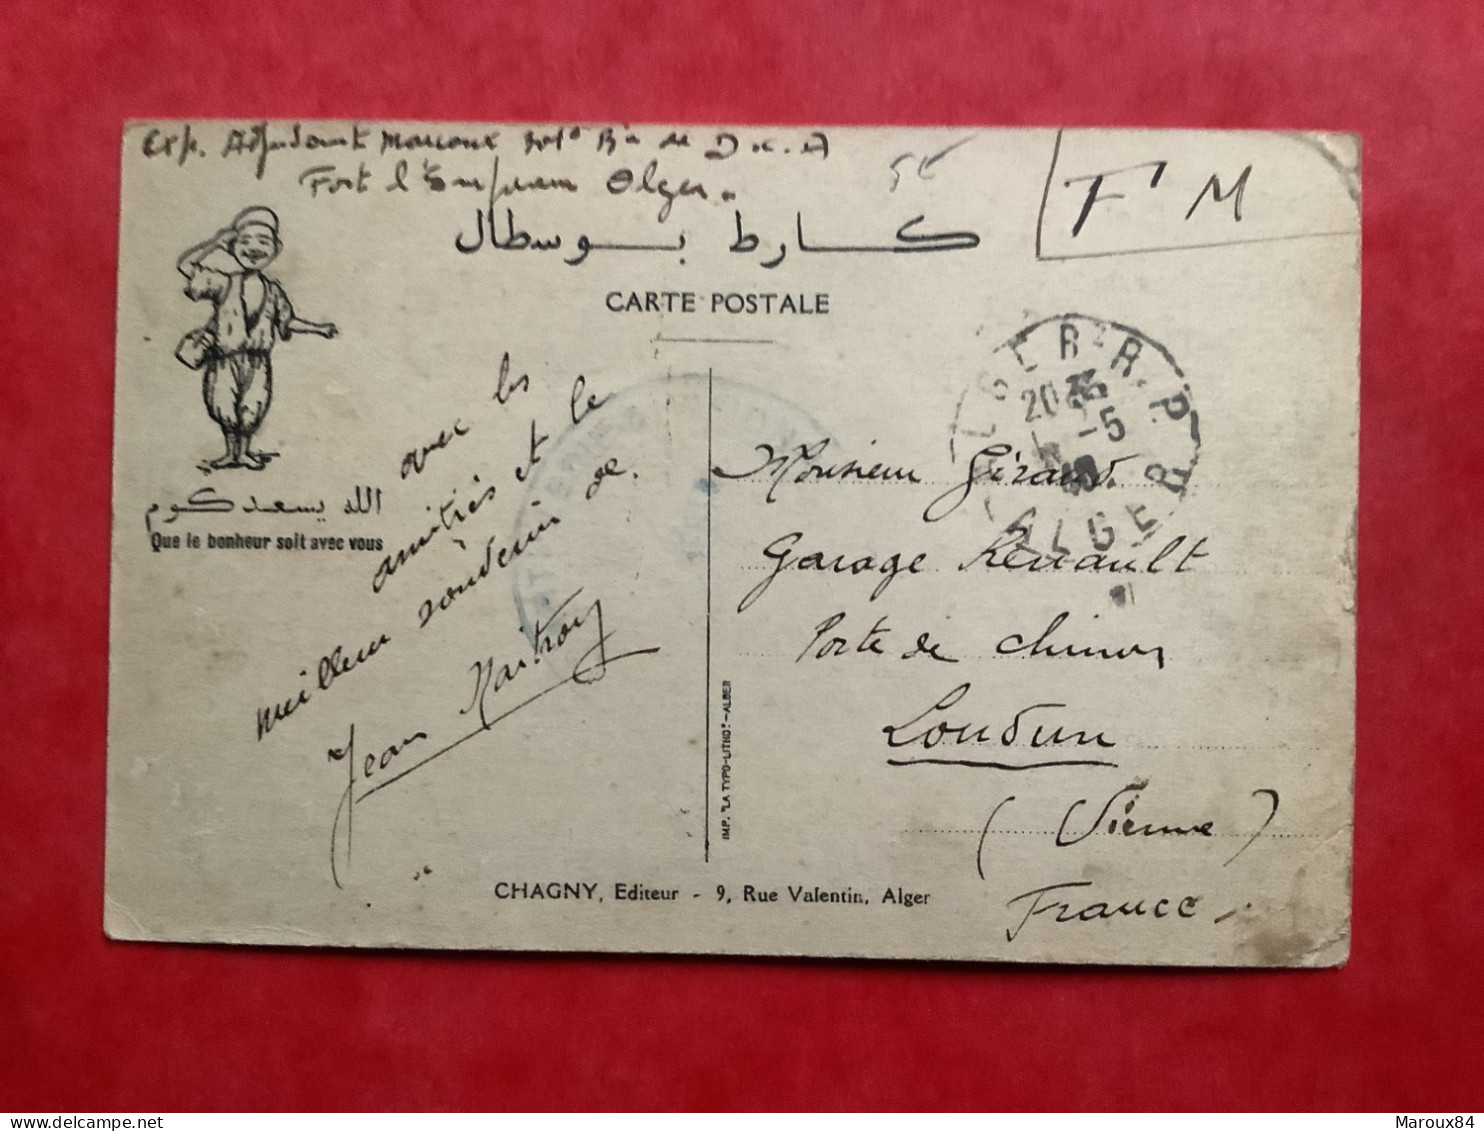 Exp. Adjudant
Fort l'Empereur Alger.
F M
كارط بوسطال
CARTE POSTALE
الله يسعدكوم
Que le bonheur soit avec vous
avec les
amitiés et le
meilleur souvenir de.
Jean
ALGER R.P.
20
-5
ALGER
Monsieur Géraud.
Garage Renault
Porte de Chinon
Loudun
(Vienne)
France
IMP. "LA TYPO-LITHO"-ALGER
CHAGNY, Editeur - 9, Rue Valentin, Alger
Maroux84